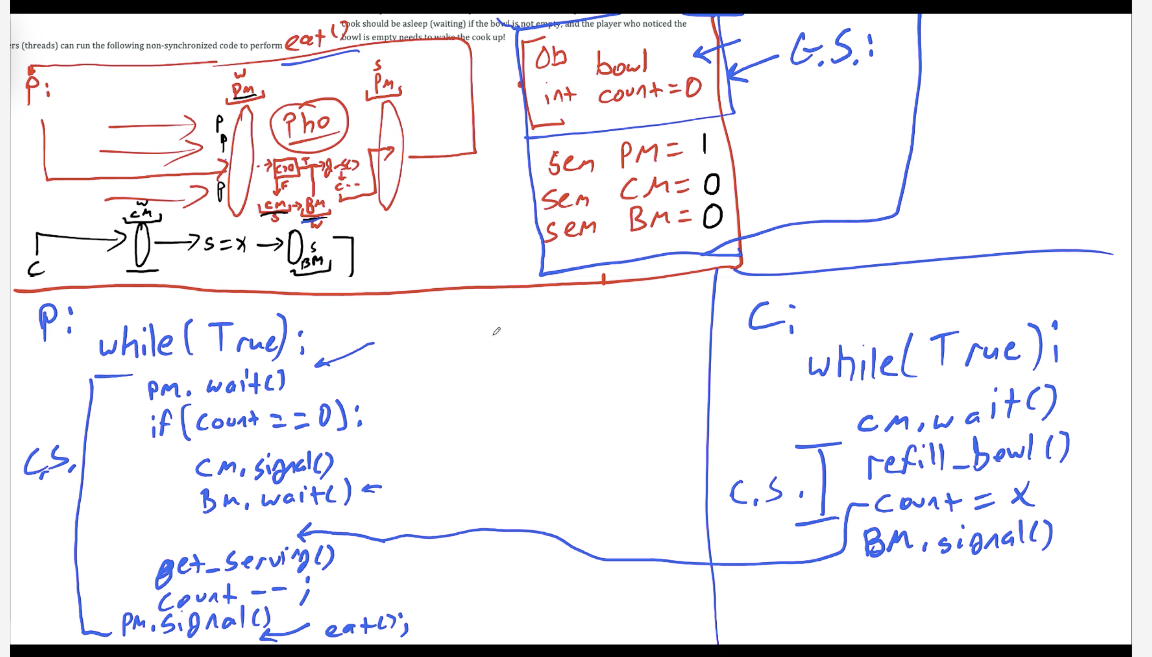 cook should be asleep (waiting) if the bowl is not empty, and the player who noticed the
bowl is empty needs to wake the cook up!
rs (threads) can run the following non-synchronized code to perform eat()
P:
W
PM
S
PM
Pho
P
P
P
C>0
T
F
CM
S
BM
W
W
CM
C
S = x
S
BM
Ob bowl
int count = 0
G.S.:
sem PM = 1
sem CM = 0
sem BM = 0
P:
while(True):
PM.wait()
if(count == 0):
CM.signal()
BM.wait()
get_serving()
count --;
PM.signal()
eat();
C.S.
C:
while(True):
CM.wait()
refill_bowl()
count = x
BM.signal()
C.S.